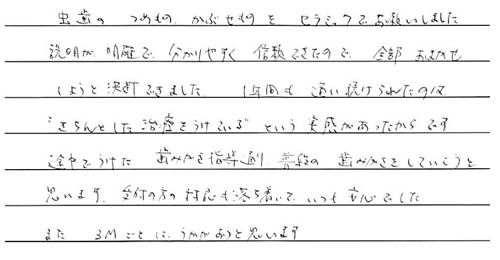 虫歯の つめもの、かぶせものを セラミックでお願いしました
説明が 明確で 分かりやすく 信頼できたので 全部 おまかせ
しようと 決断できました。 1年間も 通い続けられたのは
"きちんとした 治療をうけている" という 実感があったからです
途中でうけた 歯みがき指導通り、普段の 歯みがきをしていこうと
思います。受付の方の 対応も 落ち着いて いつも 安心でした
また 3Mごとに、うかがおうと思います